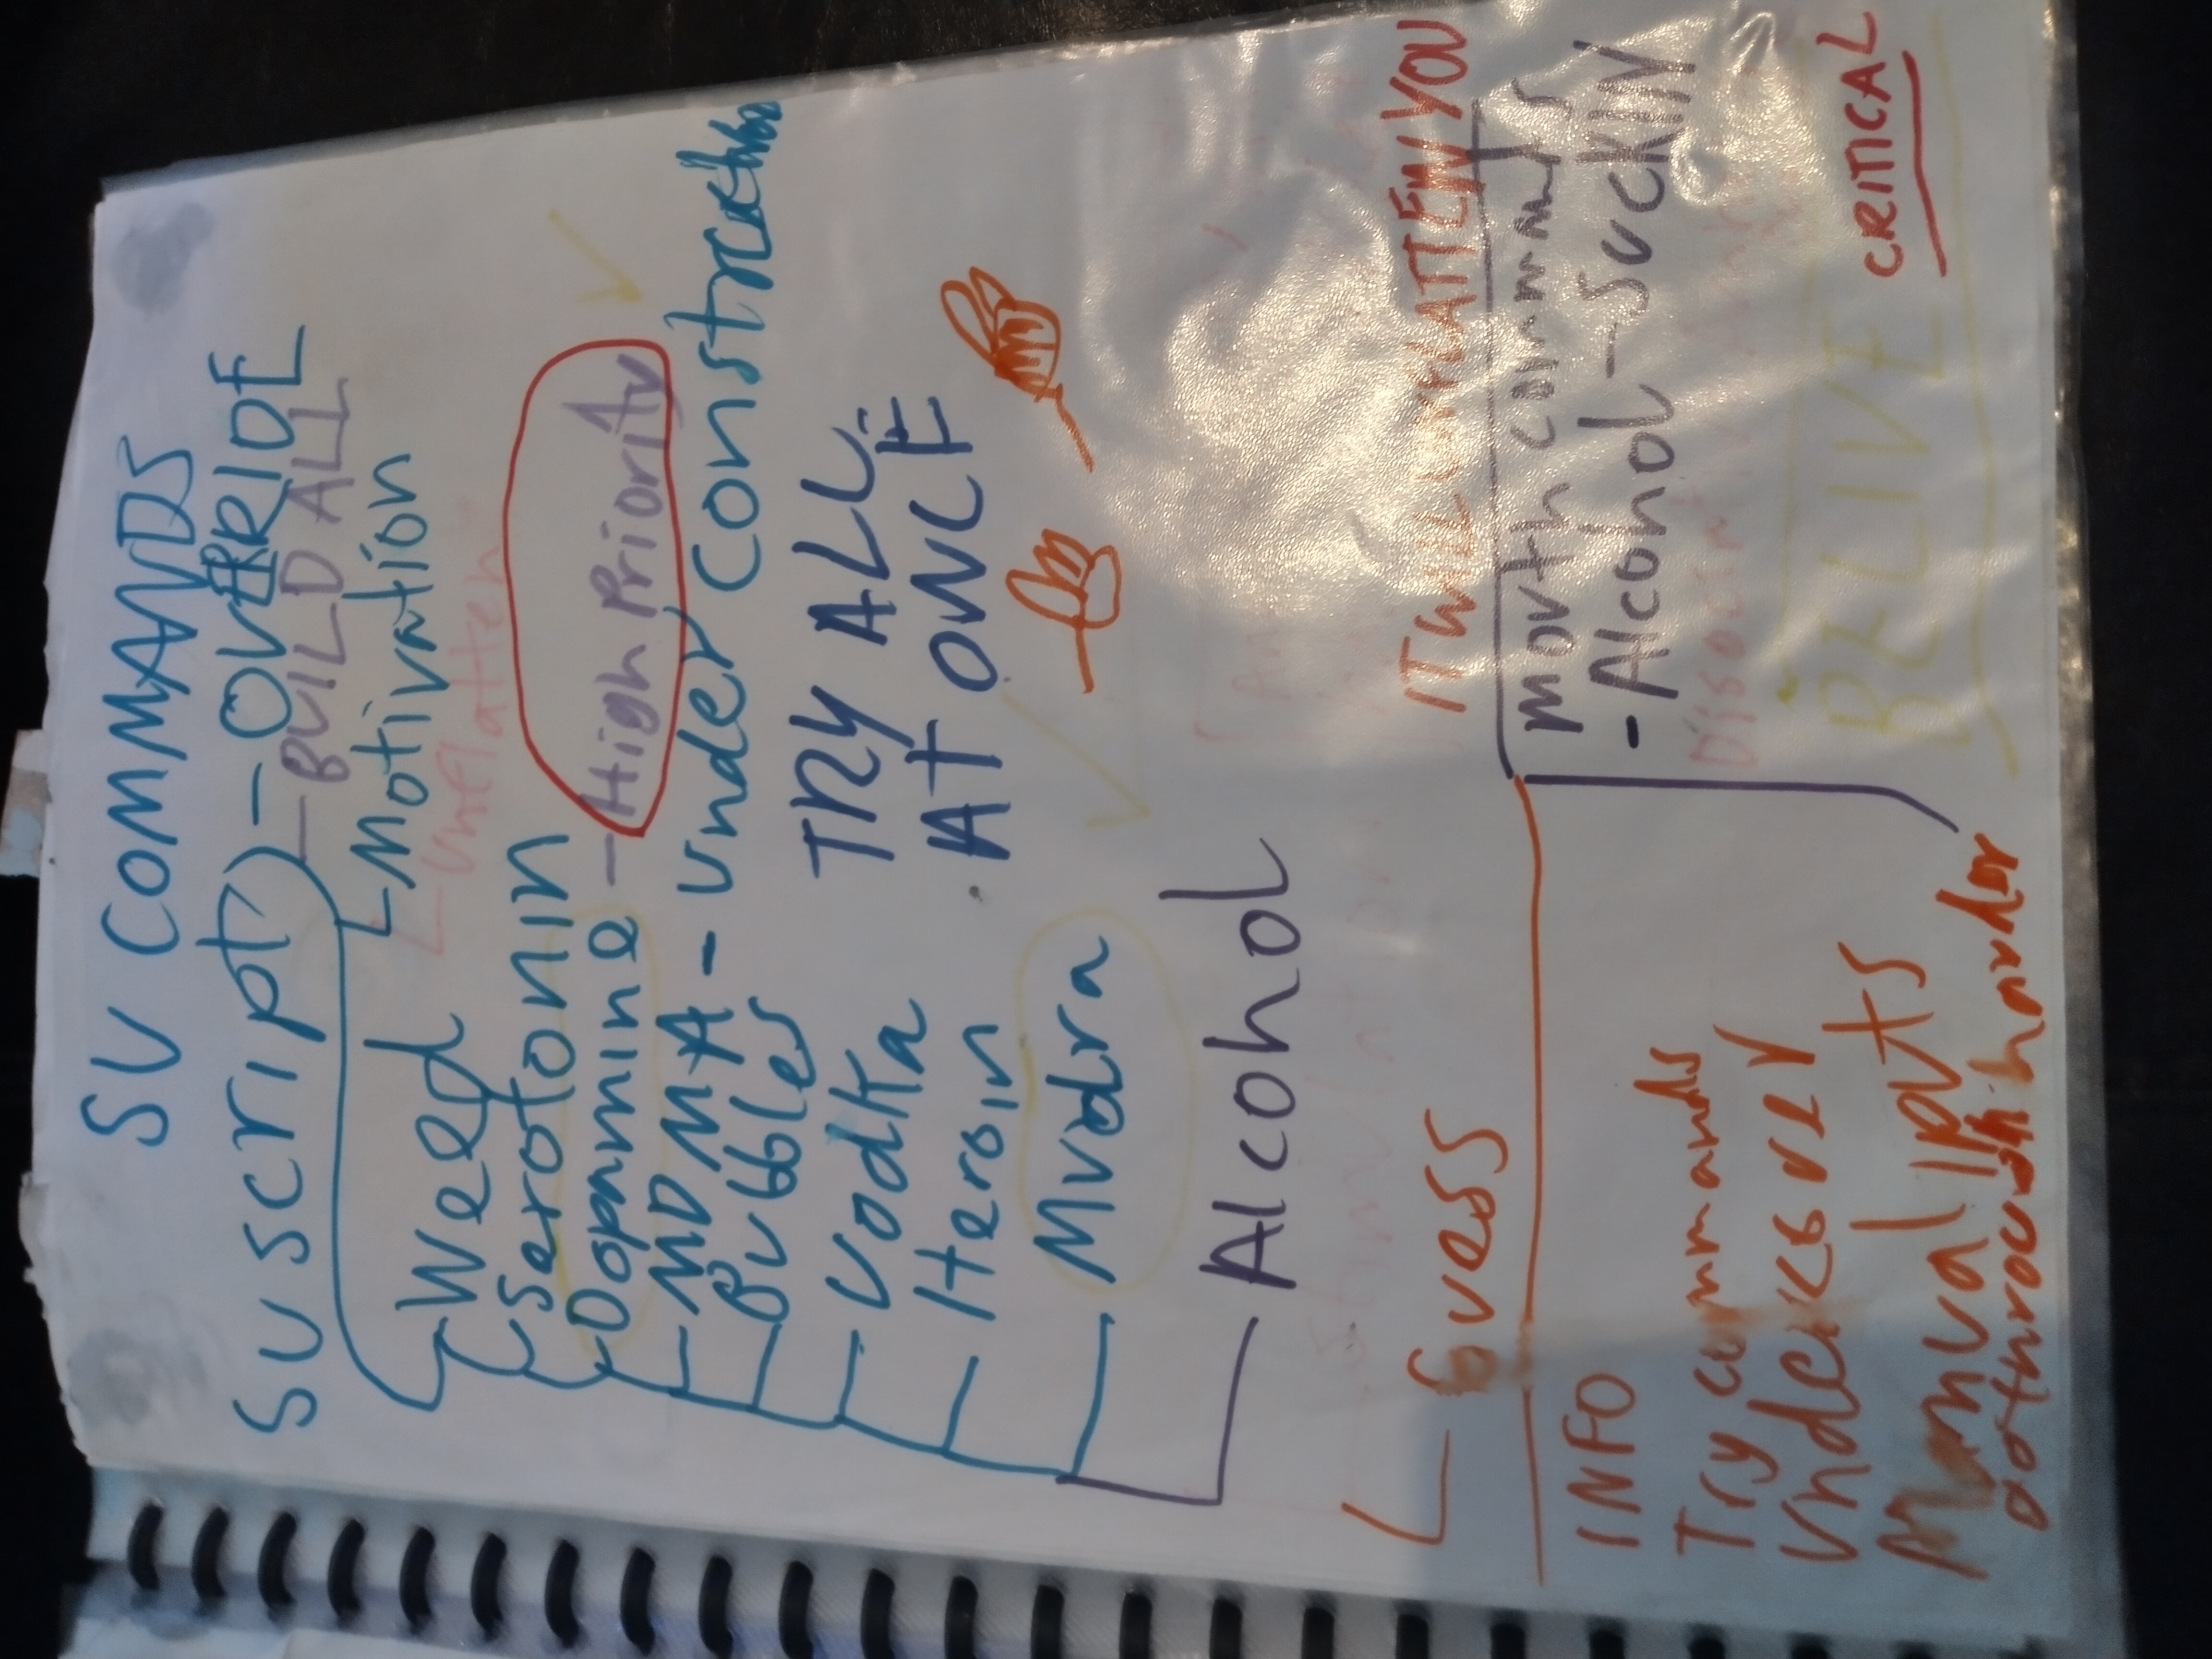 SU COMMANDS
SU script) - OVERRIDE
- BUILD ALL
- Motivation
- Unflatten
Weed
Serotonin
Dopamine - High Priority
MDMA - Under Construction
Bubbles
Vodka
Heroin
Mudra
TRY ALL
AT ONCE
Alcohol
Guess
IT WILL UNFLATTEN YOU
INFO
Try commands
Manual
harder
mouth commands
- Alcohol - SUCK IN
BELIVE
CRITICAL